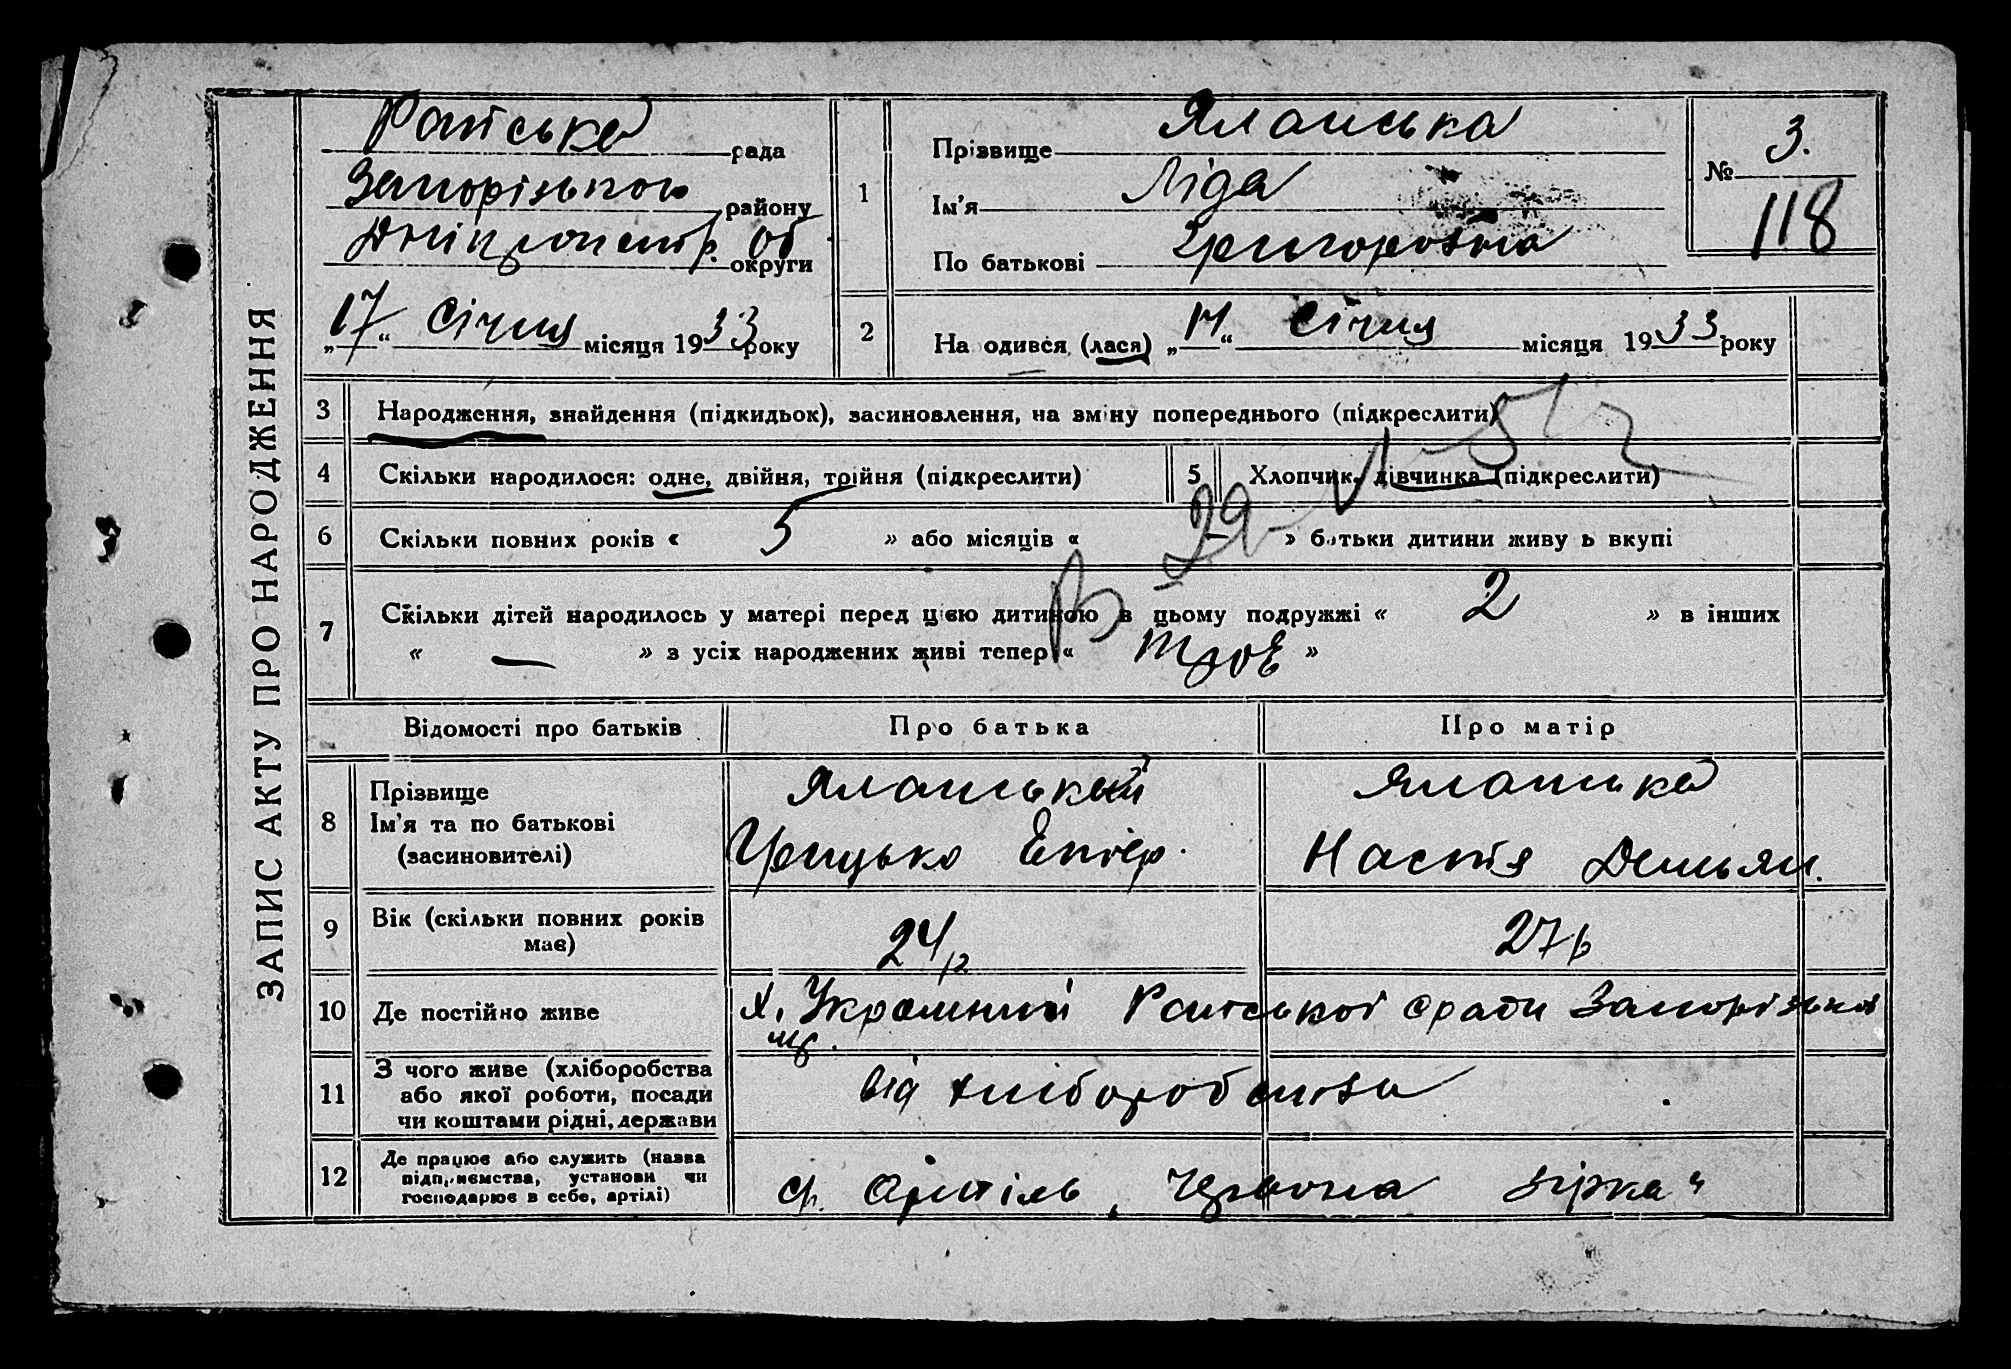 ЗАПИС АКТУ ПРО НАРОДЖЕННЯ
Райська рада
Запорізького району
Дніпропетр. Об округи
„17“ Січня місяця 1933 року
1
Прізвище Яланська
Ім'я Ліда
По батькові Григоровна
№ 3.
118
2
На одився (лася) „14“ Січня місяця 1933 року
3 Народження, знайдення (підкидьок), засиновлення, на зміну попереднього (підкреслити)
4 Скільки народилося: одне, двійня, трійня (підкреслити)
5 Хлопчик, дівчинка (підкреслити)
6 Скільки повних років « 5 » або місяців « — » батьки дитини живу ь вкупі
7 Скільки дітей народилось у матері перед цією дитиною в цьому подружжі « 2 » в інших
« — » з усіх народжених живі тепер « троє »
Відомості про батьків Про батька Про матір
8 Прізвище
Ім'я та по батькові
(засиновителі)
Яланський
Грицько
Яланська
Настя Демьян.
9 Вік (скільки повних років
має)
24 р
27 р
10 Де постійно живе
х. Украинний Райської сради Запорізького
11 З чого живе (хліборобства
або якої роботи, посади
чи коштами рідні, держави
від хліборобства
12 Де працює або служить (назва
підприємства, установи чи
господарює в себе, артілі)
ср. Артіль „Червона зірка“